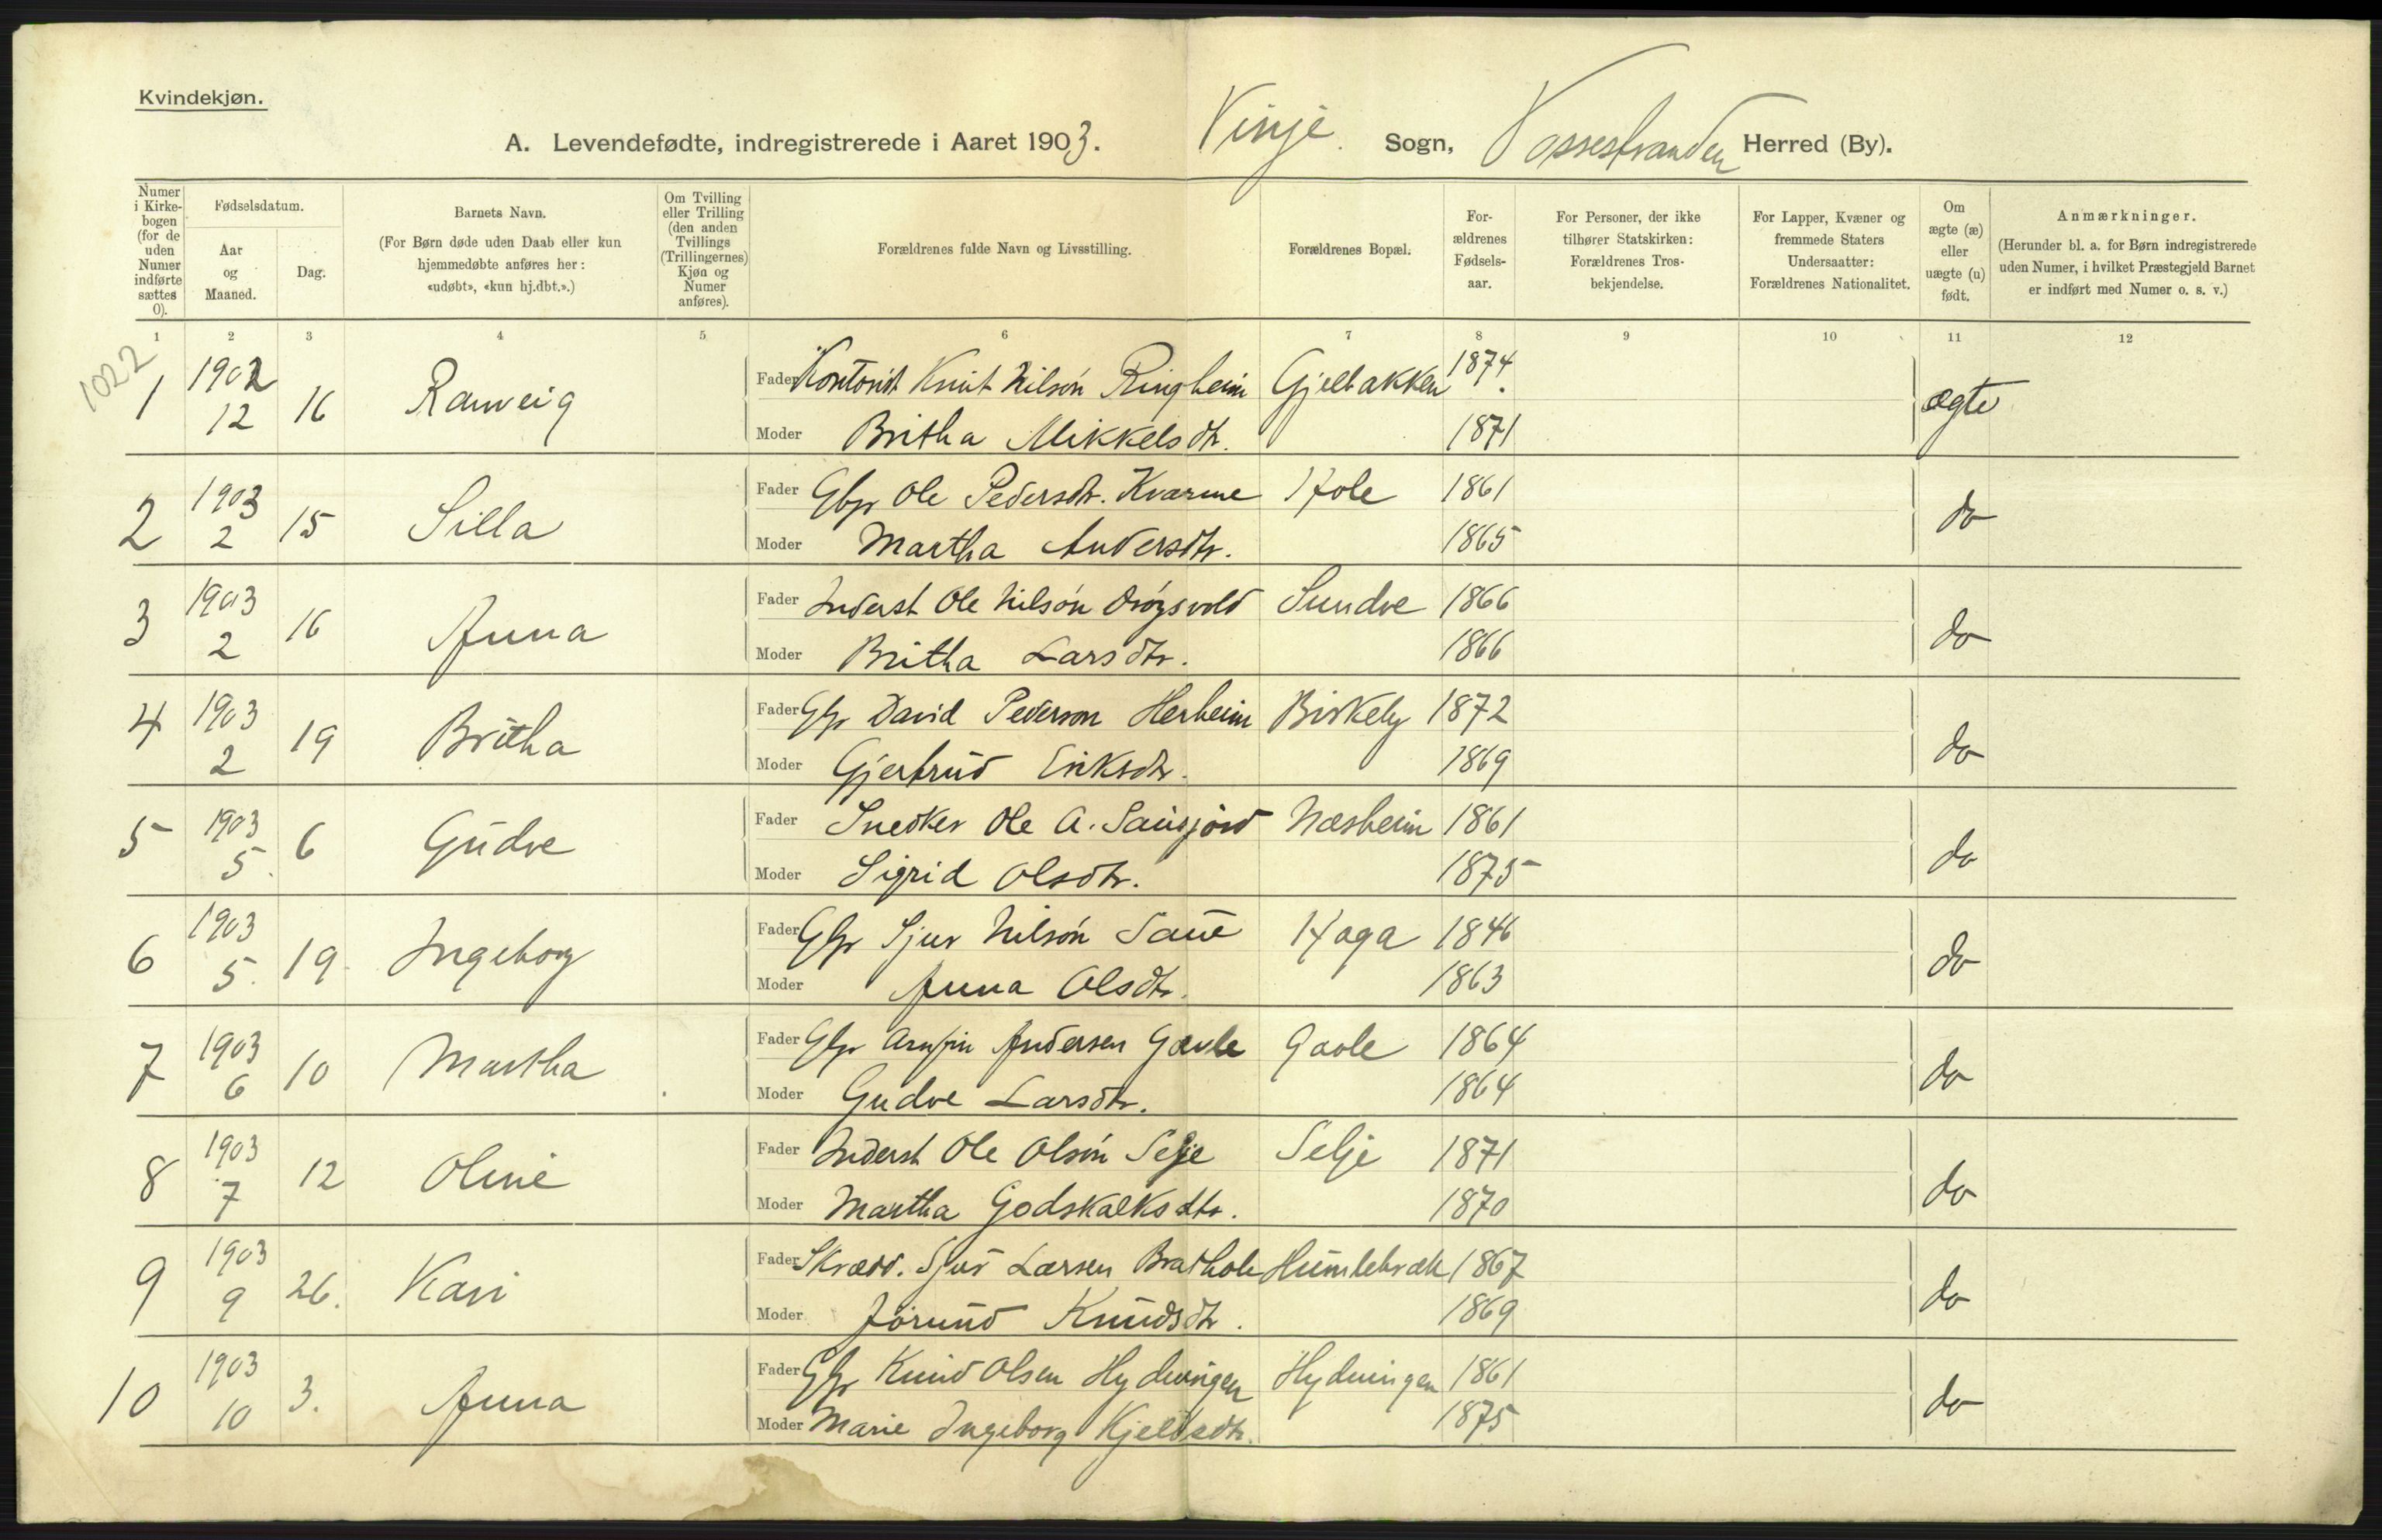 Kvindekjøn.
A. Levendefødte, indregistrerede i Aaret 1903. Vinje Sogn, Vossestranden Herred (By).
Numer i Kirkebogen (for de uden Numer indførte sættes 0).
Fødselsdatum.
Aar og Maaned.
Dag.
Barnets Navn.
(For Børn døde uden Daab eller kun hjemmedøbte anføres her: «udøbt», «kun hj.dbt.».)
Om Tvilling eller Trilling (den anden Tvillings (Trillingernes) Kjøn og Numer anføres).
Forældrenes fulde Navn og Livsstilling.
Forældrenes Bopæl.
Forældrenes Fødselsaar.
For Personer, der ikke tilhører Statskirken: Forældrenes Trosbekjendelse.
For Lapper, Kvæner og fremmede Staters Undersaatter: Forældrenes Nationalitet.
Om ægte (æ) eller uægte (u) født.
Anmærkninger.
(Herunder bl. a. for Børn indregistrerede uden Numer, i hvilket Præstegjeld Barnet er indført med Numer o. s. v.)
1 2 3 4 5 6 7 8 9 10 11 12
1022
1 1902 12 16 Ranveig Fader Kontorist Knut Nilsön Ringheim Gjelbakken 1874. ægte
Moder Britha Mikkelsdtr. 1871
2 1903 2 15 Silla Fader Gbr Ole Pedersdtr. Kvarme Hole 1861 do
Moder Martha Andersdtr. 1865
3 1903 2 16 Anna Fader Inderst Ole Nilsön Sundve 1866 do
Moder Britha Larsdtr. 1866
4 1903 2 19 Britha Fader Gbr David Pederson Herheim Birkely 1872 do
Moder Gjertrud Eriksdtr. 1869
5 1903 5. 6 Gudve Fader Snedker Ole A. Næsheim 1861 do
Moder Sigrid Olsdtr. 1875
6 1903 5. 19 Ingeborg Fader Gbr Sjur Nilsön Saue Haga 1846 do
Moder Anna Olsdtr. 1863
7 1903 6 10 Martha Fader Gbr Arnfin Andersen Gavle Gavle 1864 do
Moder Gudve Larsdtr. 1864
8 1903 7 12 Oline Fader Inderst Ole Olsön Selje Selje 1871 do
Moder Martha Godskalksdtr. 1870
9 1903 9 26. Kari Fader Skrædd. Sjur Larsen Brathole Humlebræk 1867 do
Moder Jorund Knudsdtr. 1869
10 1903 10 3. Anna Fader Gbr Knud Olsen Hydningen Hydningen 1861 do
Moder Marie Ingeborg Kjeldsdtr. 1875